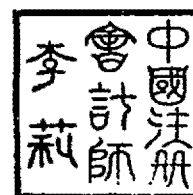 中國注册
會計師
李莉